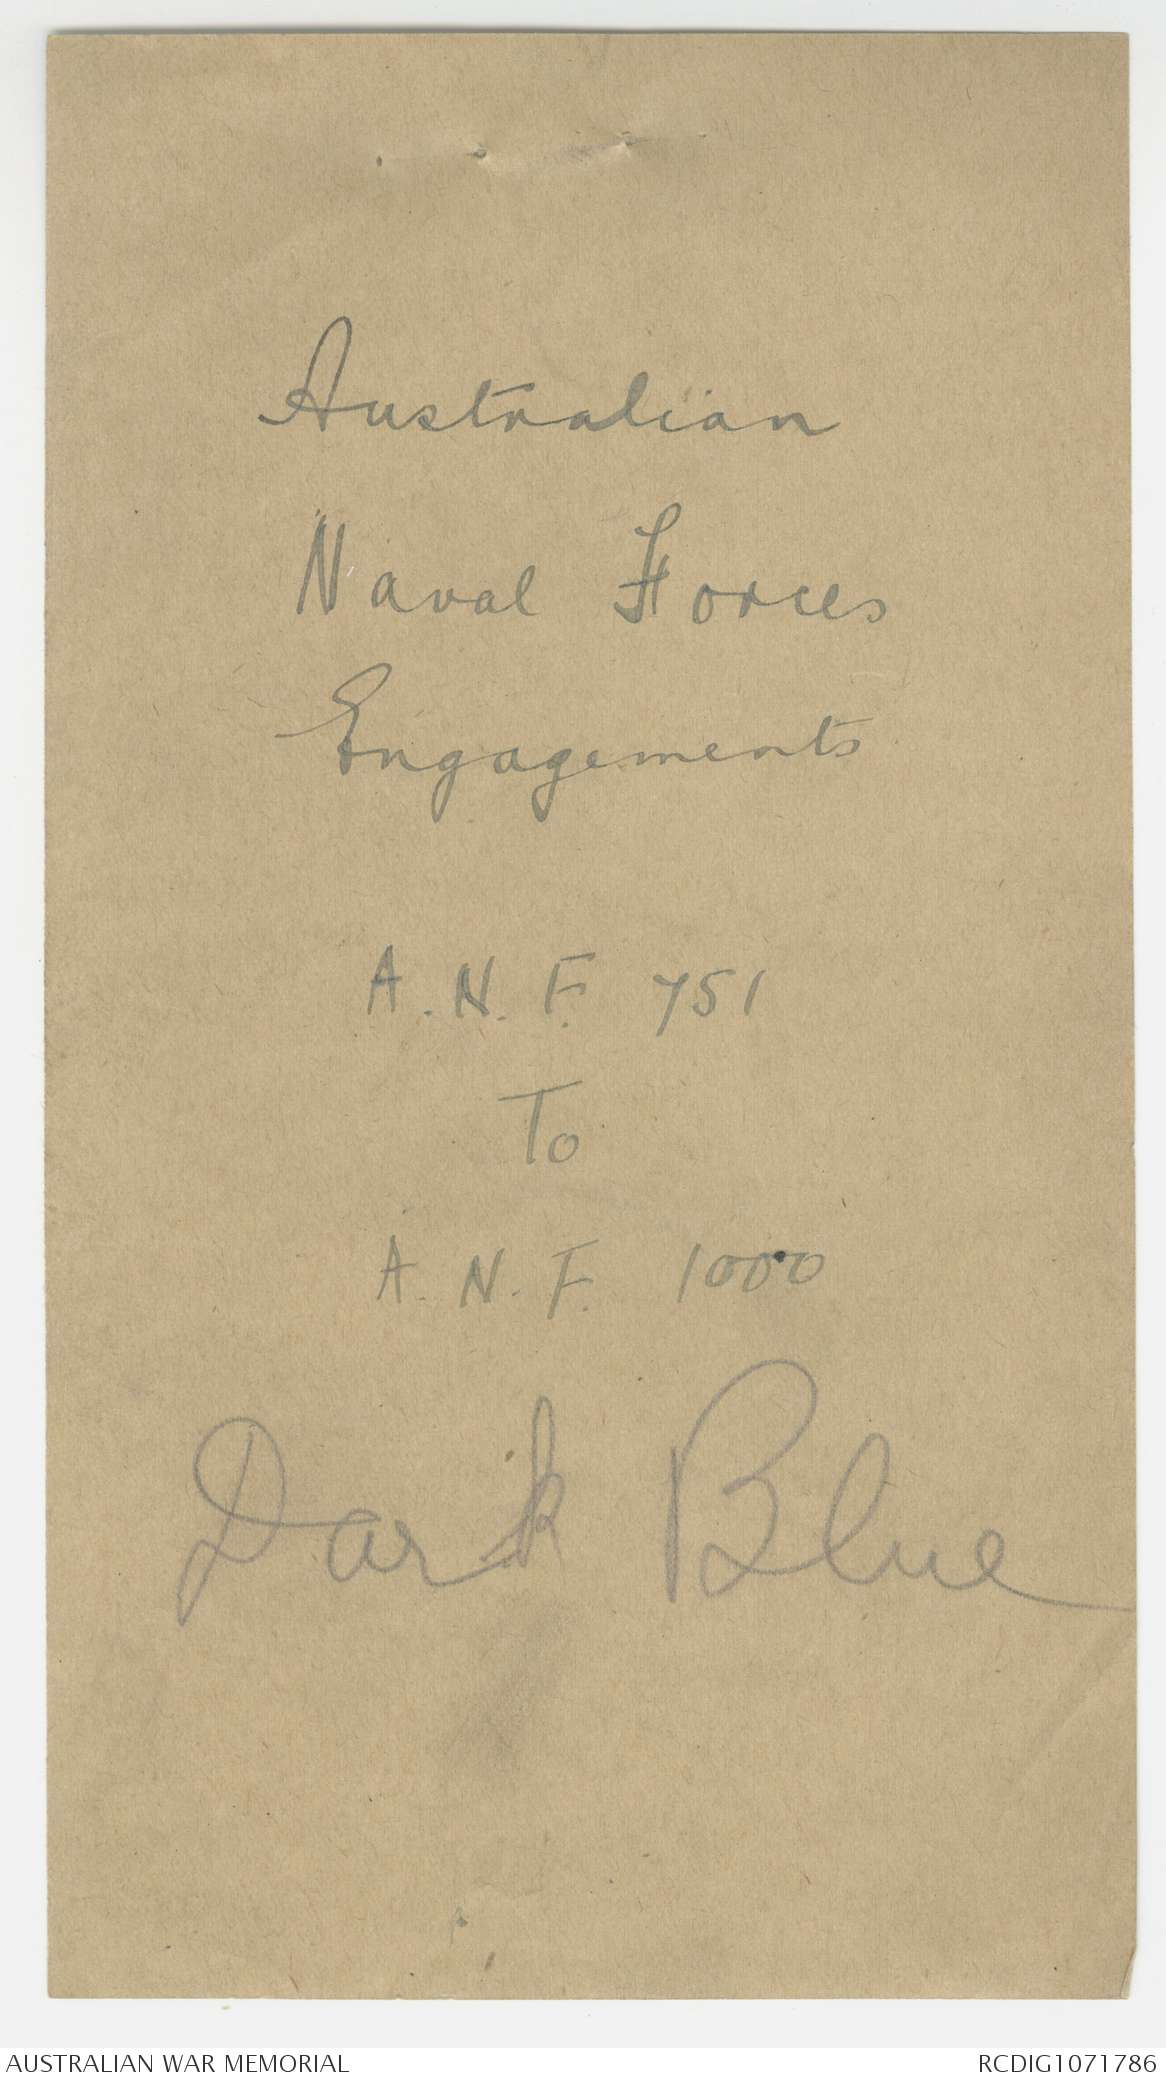 Australian
Naval Forces
Engagements
A.N.F. 751
To
A.N.F. 1000
Dark Blue
AUSTRALIAN WAR MEMORIAL
RCDIG1071786